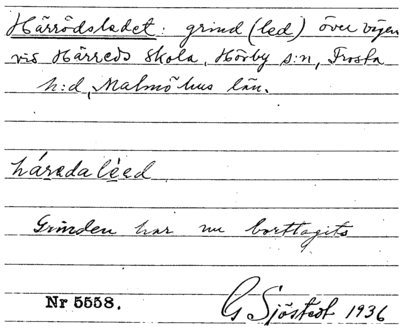 Härrödsledet: grind (led) över vägen
vid Härreds skola, Hörby s:n, Frosta
h:d, Malmöhus län.
háredalèed
Grinden har nu borttagits
Nr 5558. G Sjöstedt 1936